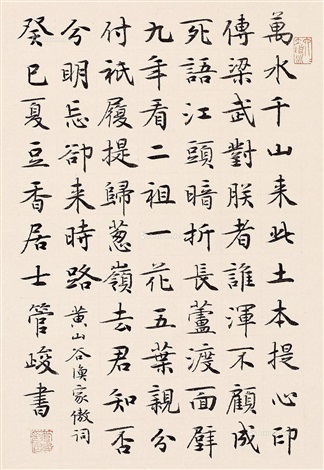 萬水千山来此土本提心印
傳梁武對朕者誰渾不顧成
死語江頭暗折長蘆渡面壁
九年看二祖一花五葉親分
付祇履提歸葱嶺去君知否
分明忘卻来時路 黄山谷漁家傲詞
癸巳夏豆香居士管峻書